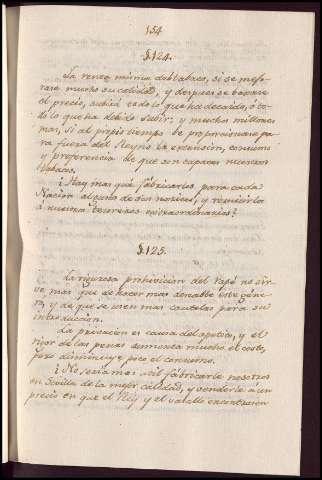 154
§.124.
La renta misma del tabaco, si se mejo-
rase mucho su calidad, y despues se baxase
el precio, subirá todo lo que ha decaido, ó to-
do lo que ha debido subir: y muchos millones
mas, si al propio tiempo se proporcionase pa-
ra fuera del Reyno la extension, consumo
y preferencia de que son capaces nuestros
tabacos.
¿Hay mas que fabricarlos para cada
Nacion al gusto de sus narices, y reducirla
á nuestra tesorera extraordinaria?
§.125.
La rigurosa prohivicion del rapé no sir-
ve mas que de hacer mas deseable este géne-
ro, y de que se usen mas cautelas para su
introduccion.
La privacion es causa del apetito, y el
rigor de las penas aumenta mucho el coste,
pero diminuye poco el consumo.
¿No seria mas util fabricarle nosotros
en Sevilla de la mejor calidad, y venderle á un
precio en que el Rey y el vasallo encontrasen